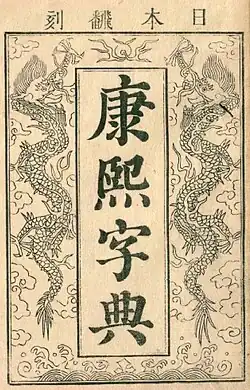 日本翻刻
康熙字典